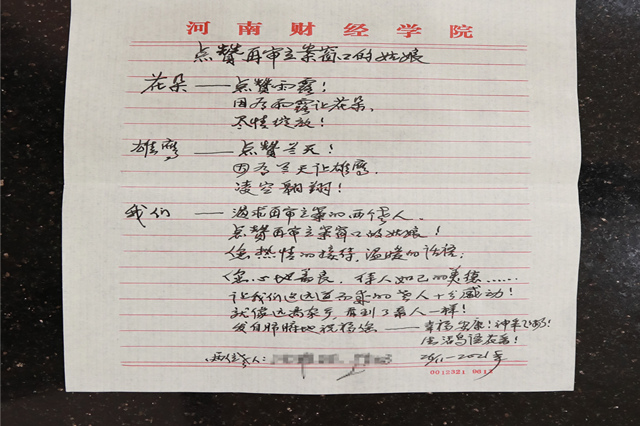 河南财经学院
点赞再审立案窗口的姑娘
花朵——点赞雨露!
因为雨露让花朵,
尽情绽放!
雄鹰——点赞蓝天!
因为蓝天让雄鹰,
凌空翱翔!
我们——渴求再审立案的两个人,
点赞再审立案窗口的姑娘!
您热情的接待,温暖的话语,
您心地善良,待人如己的美德……
让我们这远道而来的老人十分感动!
就像远离家乡,看到了亲人一样!
发自肺腑地祝福您——幸福安康!
人:
2021年
0012321 0612